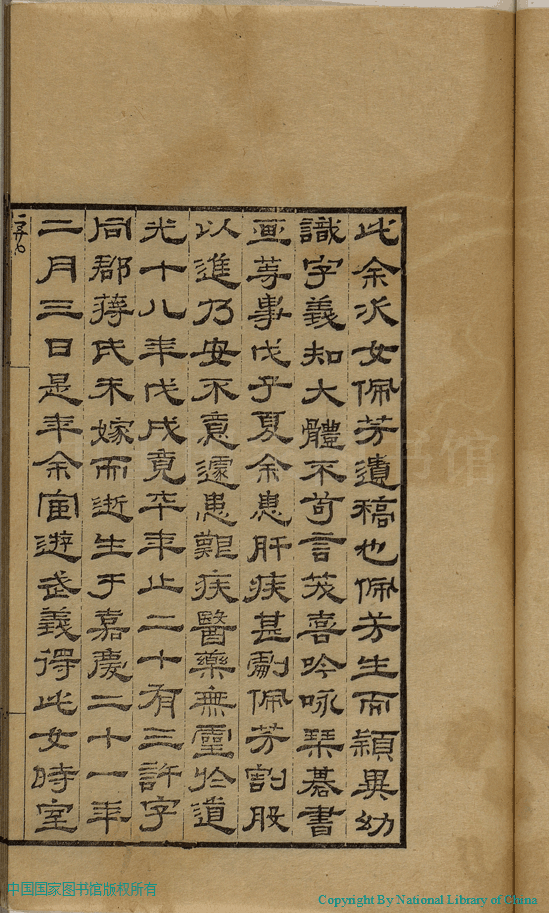 此余次女佩芳遺稿也佩芳生而穎異幼
識字義知大體不苟言笑喜吟咏琹碁書
画等事戊子夏余患肝疾甚劇佩芳割股
以進乃安不意遽患難疾醫藥無靈於道
光十八年戊戌竟卒年止二十有三許字
同郡蔣氏未嫁而逝生于嘉慶二十一年
二月三日是年余宦遊武義得此女時室
书馆
中国国家图书馆版权所有
Copyright By National Library of China